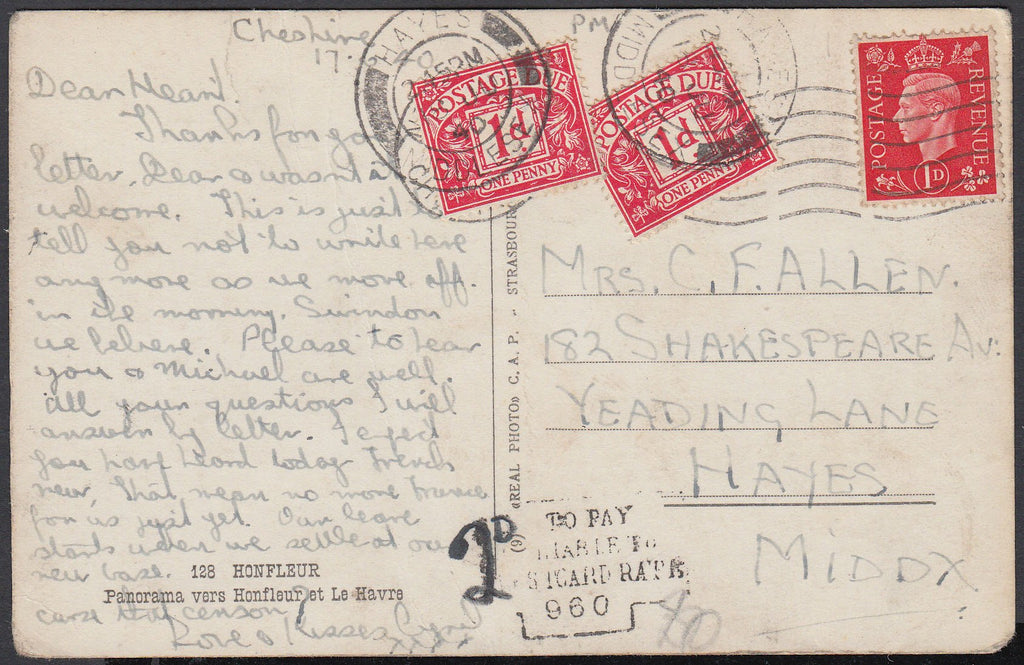 Cheshire
17.
PM
Dear Heart!
Thanks for
letter. Dear wasn't it
welcome. This is just to
tell you not to write here
any more as we move off
in the morning. Swindon
we believe. Please to hear
you & Michael are well.
All your questions I will
answer by letter. I expect
you have heard today French
news, that mean no more France
for us just yet. Our leave
starts when we settle at our
new base.
censor?
Love & Kisses
xxxx
128 HONFLEUR
Panorama vers Honfleur et Le Havre
(9) «REAL PHOTO» C. A. P. - STRASBOURG
HAYES
2.15 PM
POSTAGE DUE
1d
ONE PENNY
POSTAGE DUE
1d
ONE PENNY
POSTAGE REVENUE
1D
MRS. C. F. ALLEN.
182 SHAKESPEARE AV:
YEADING LANE
HAYES
MIDDX
2D
TO PAY
LIABLE TO
POSTCARD RATE
960